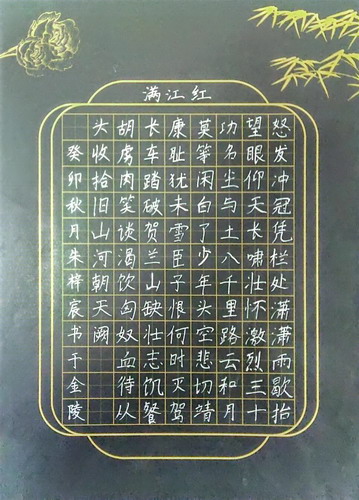 满江红
怒发冲冠凭栏处潇潇雨歇抬
望眼仰天长啸壮怀激烈三十
功名尘与土八千里路云和月
莫等闲白了少年头空悲切靖
康耻犹未雪臣子恨何时灭驾
长车踏破贺兰山缺壮志饥餐
胡虏肉笑谈渴饮匈奴血待从
头收拾旧山河朝天阙
癸卯秋月朱梓宸书于金陵